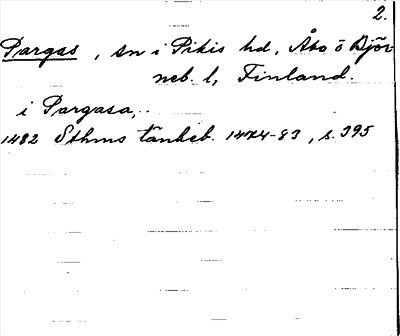 2.
Pargas, sn i Pikis hd, Åbo o Björ
neb. l, Finland.
i Pargasa,..
1482 Sthms tänkeb. 1474-83, s. 395